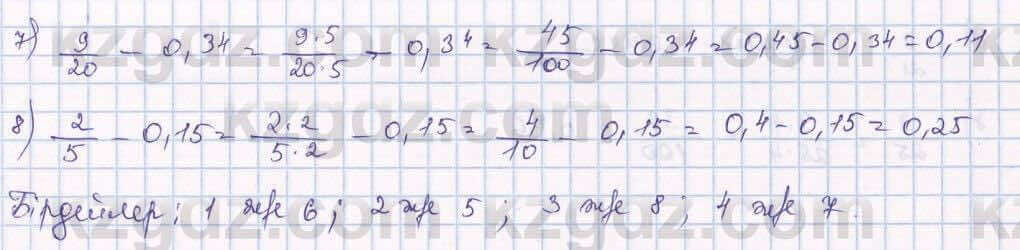 7) 9/20 - 0,34 = 9·5/20·5 - 0,34 = 45/100 - 0,34 = 0,45 - 0,34 = 0,11
8) 2/5 - 0,15 = 2·2/5·2 - 0,15 = 4/10 - 0,15 = 0,4 - 0,15 = 0,25
Бірдейлер; 1 және 6; 2 және 5; 3 және 8; 4 және 7.
kzgdz.com